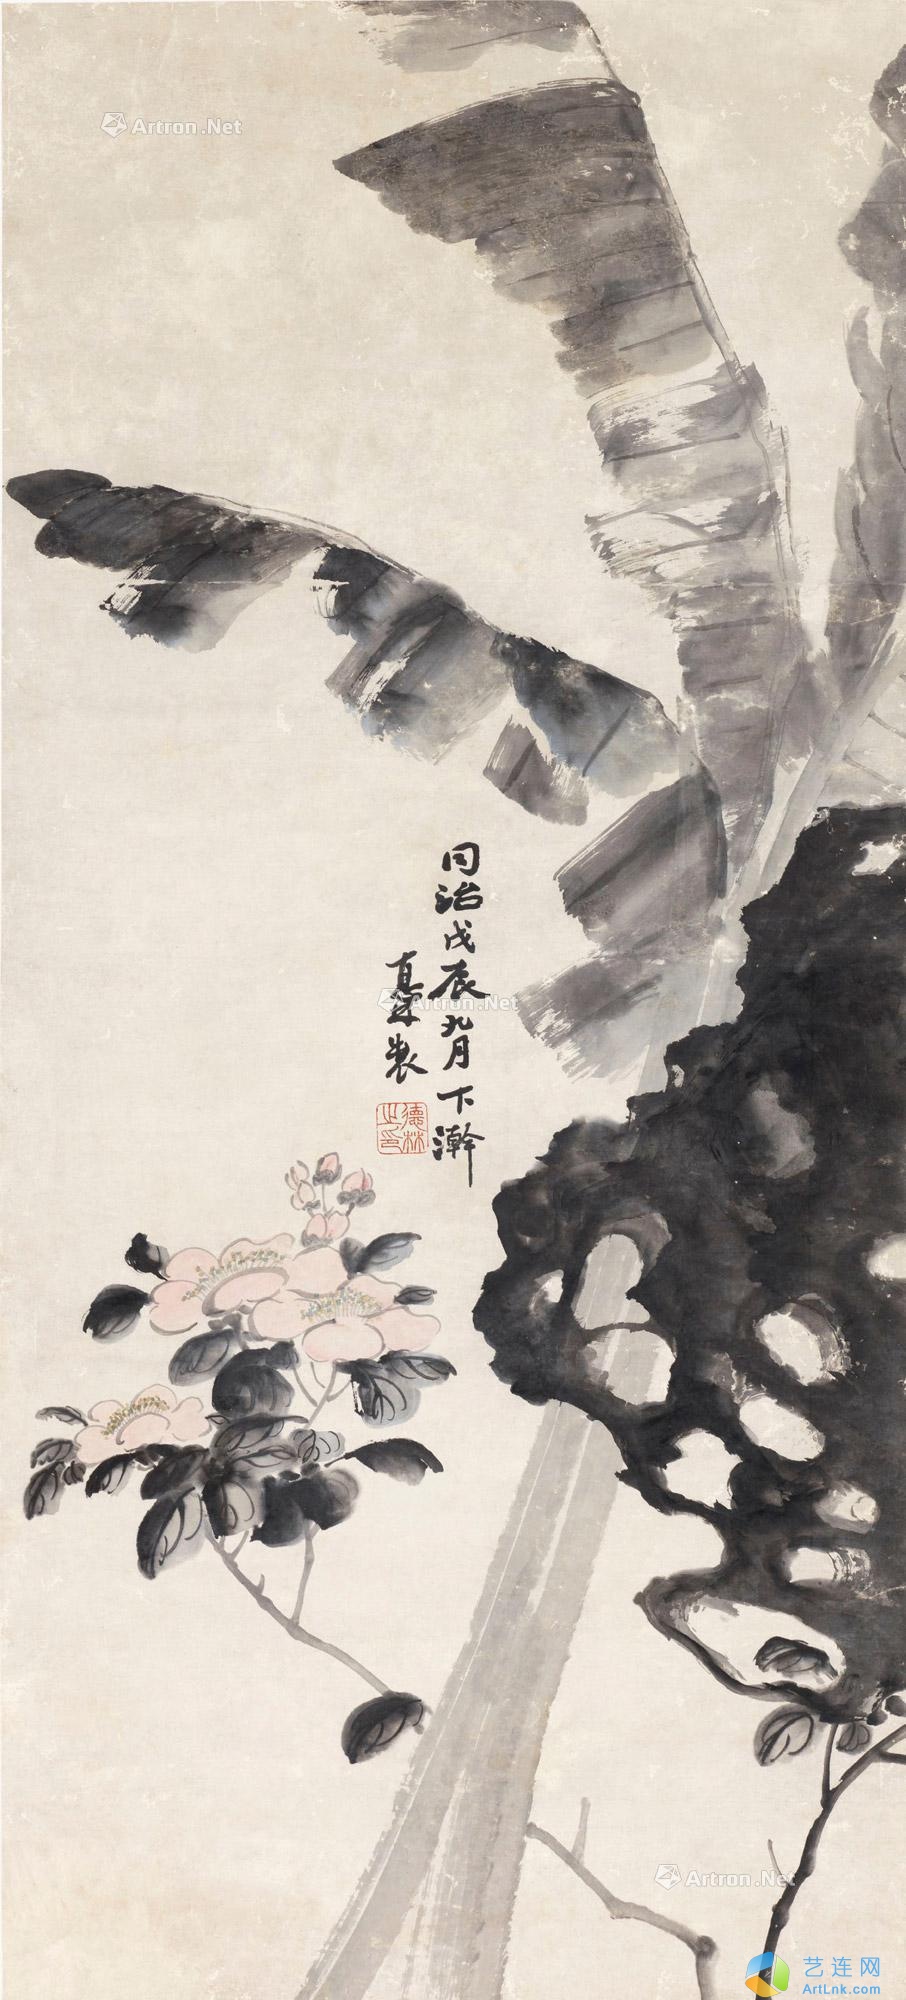 Artron.Net
同治戊辰九月下澣
真木製
Artron.Net
德林之印
Artron.Net
艺连网
ArtLnk.com